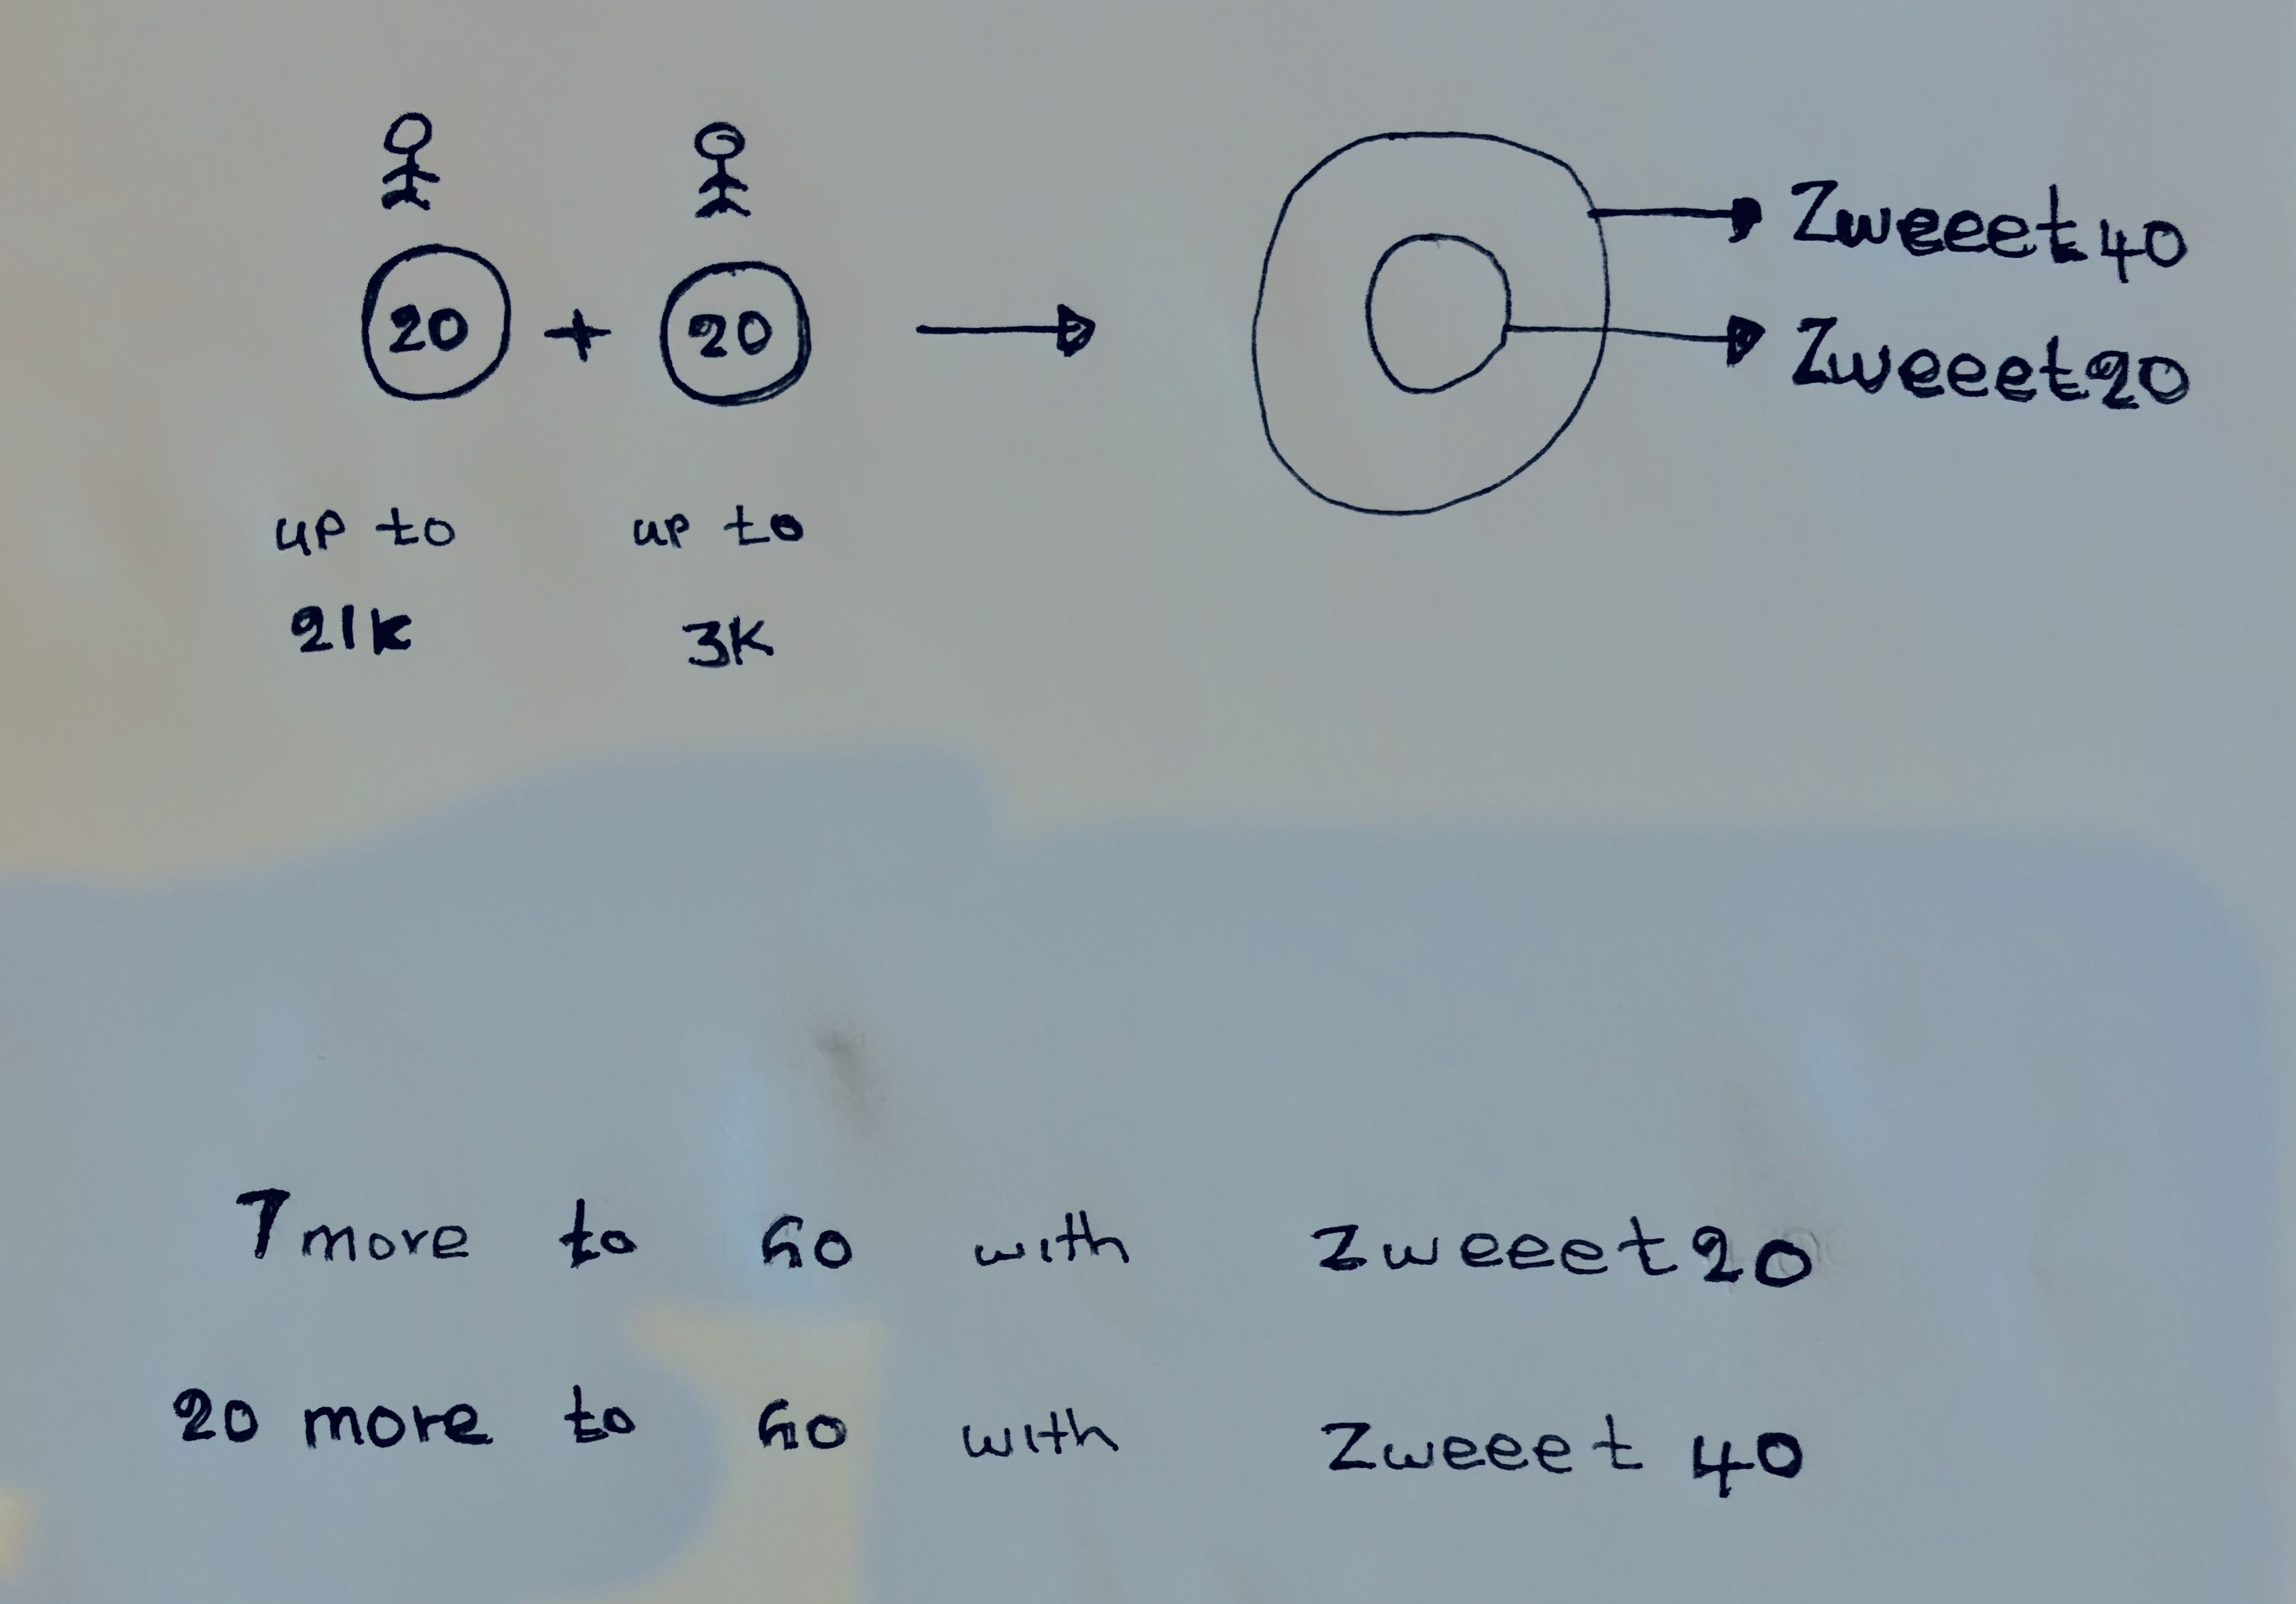 20 + 20
Zweeet40
Zweeet20
up to up to
21k 3K
7 more to Go with Zweeet20
20 more to Go with Zweeet 40